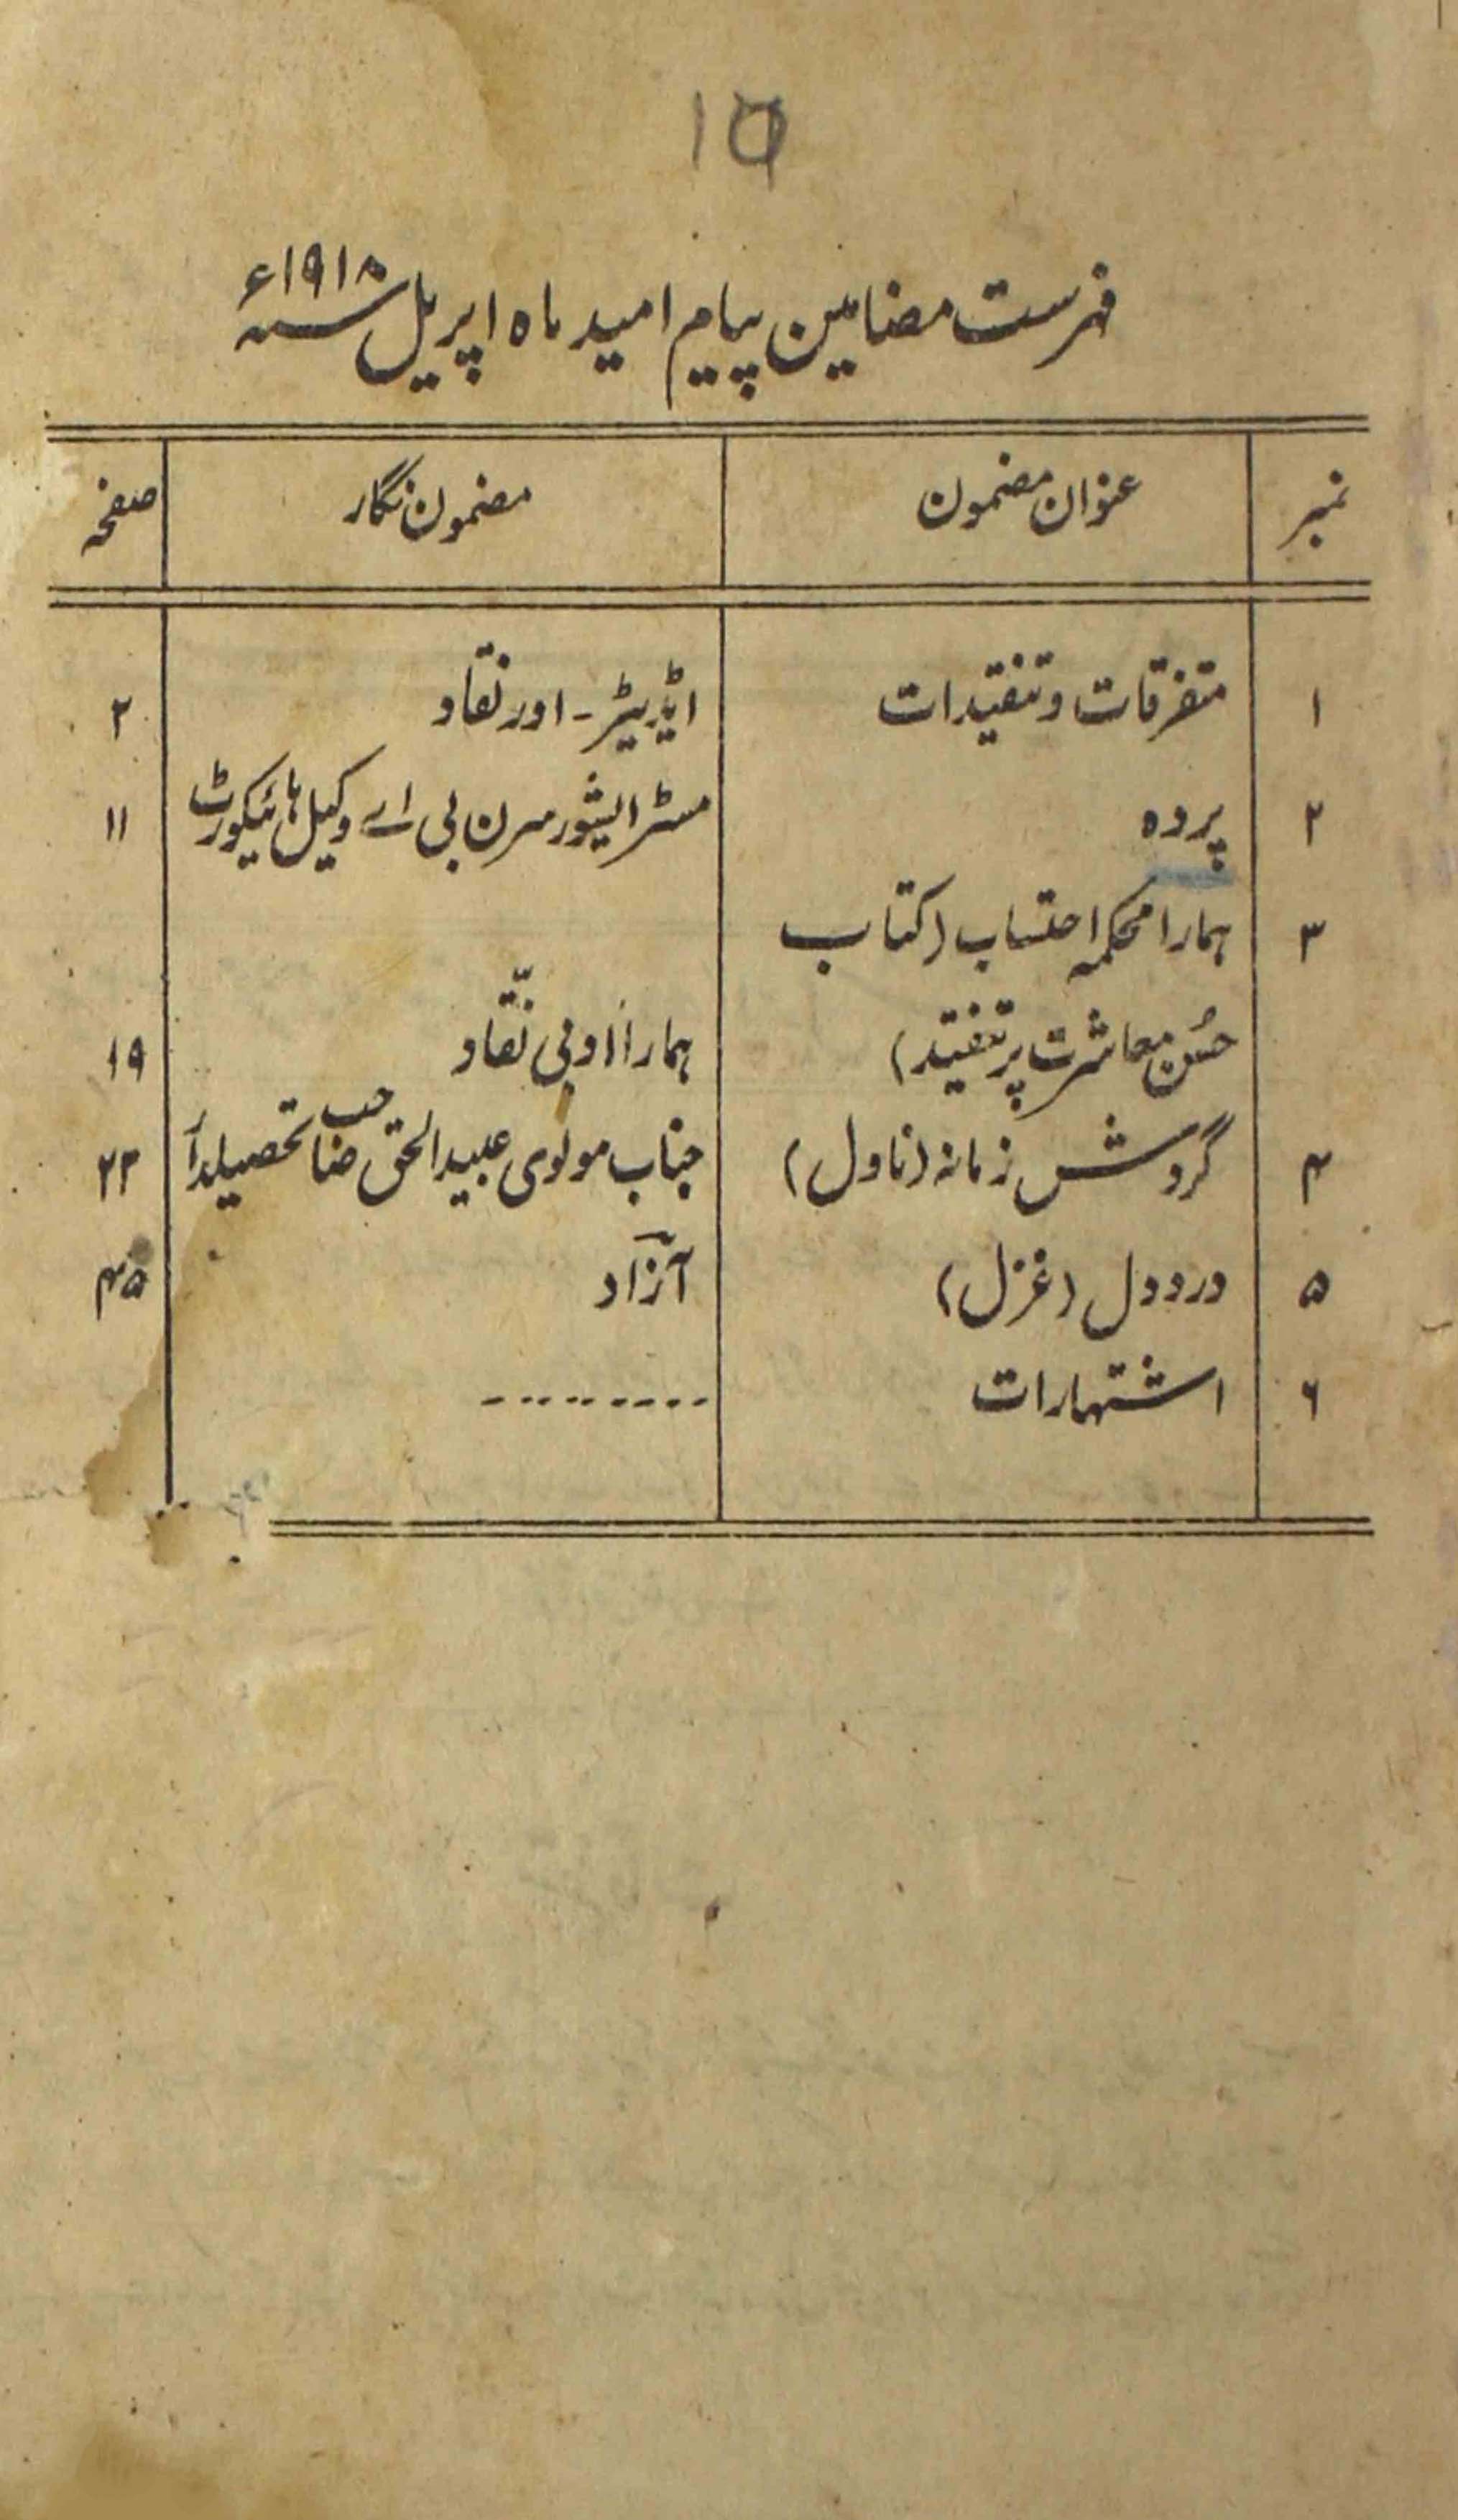 فہرست مضامین پیام امید ماہ اپریل سنہ ۱۹۱۸ء
نمبر عنوان مضمون مضمون نگار صفحہ
۱ متفرقات و تنقیدات ایڈیٹر۔ اور نقاد ۲
۲ پردہ مسٹر ایشور سرن بی اے وکیل ہائیکورٹ ۱۱
۳ ہمارا محکمہ احتساب (کتاب
حُسن معاشرت پر تنقید) ہمارا ادبی نقّاد ۱۹
۴ گردش زمانہ (ناول) جناب مولوی عبید الحق صاحب تحصیلدار ۲۳
۵ درد دل (غزل) آزاد ۴۵
۶ اشتہارات ---------